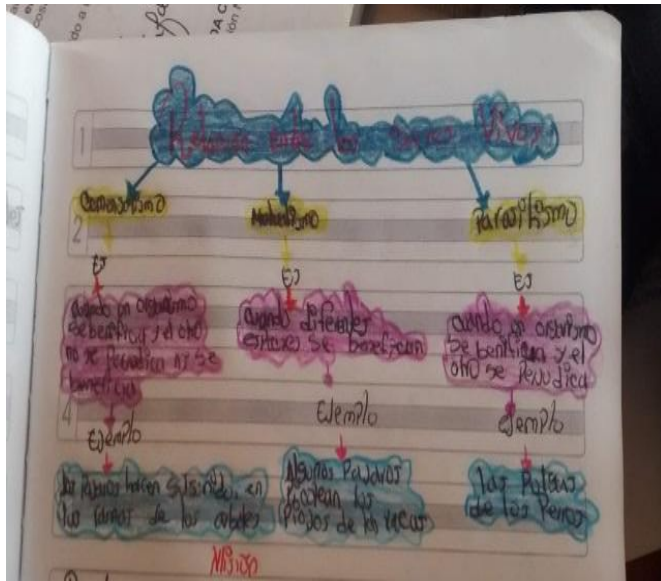 Relación entre los seres Vivos
1
Comensalismo
Mutualismo
Parasitismo
2
Es
Es
Es
cuando un organismo
se benifica y el otro
no se perjudica ni se
beneficia
cuando diferentes
especies se benefician
cuando un organismo
se benifician y el
otro se perjudica
4
Ejemplo
Ejemplo
Ejemplo
los pajaros hacen sus nido, en
las ramas de los arboles
Algunos Pajaros
los
Piojos de la vacas
las Pulgas
de los Perros